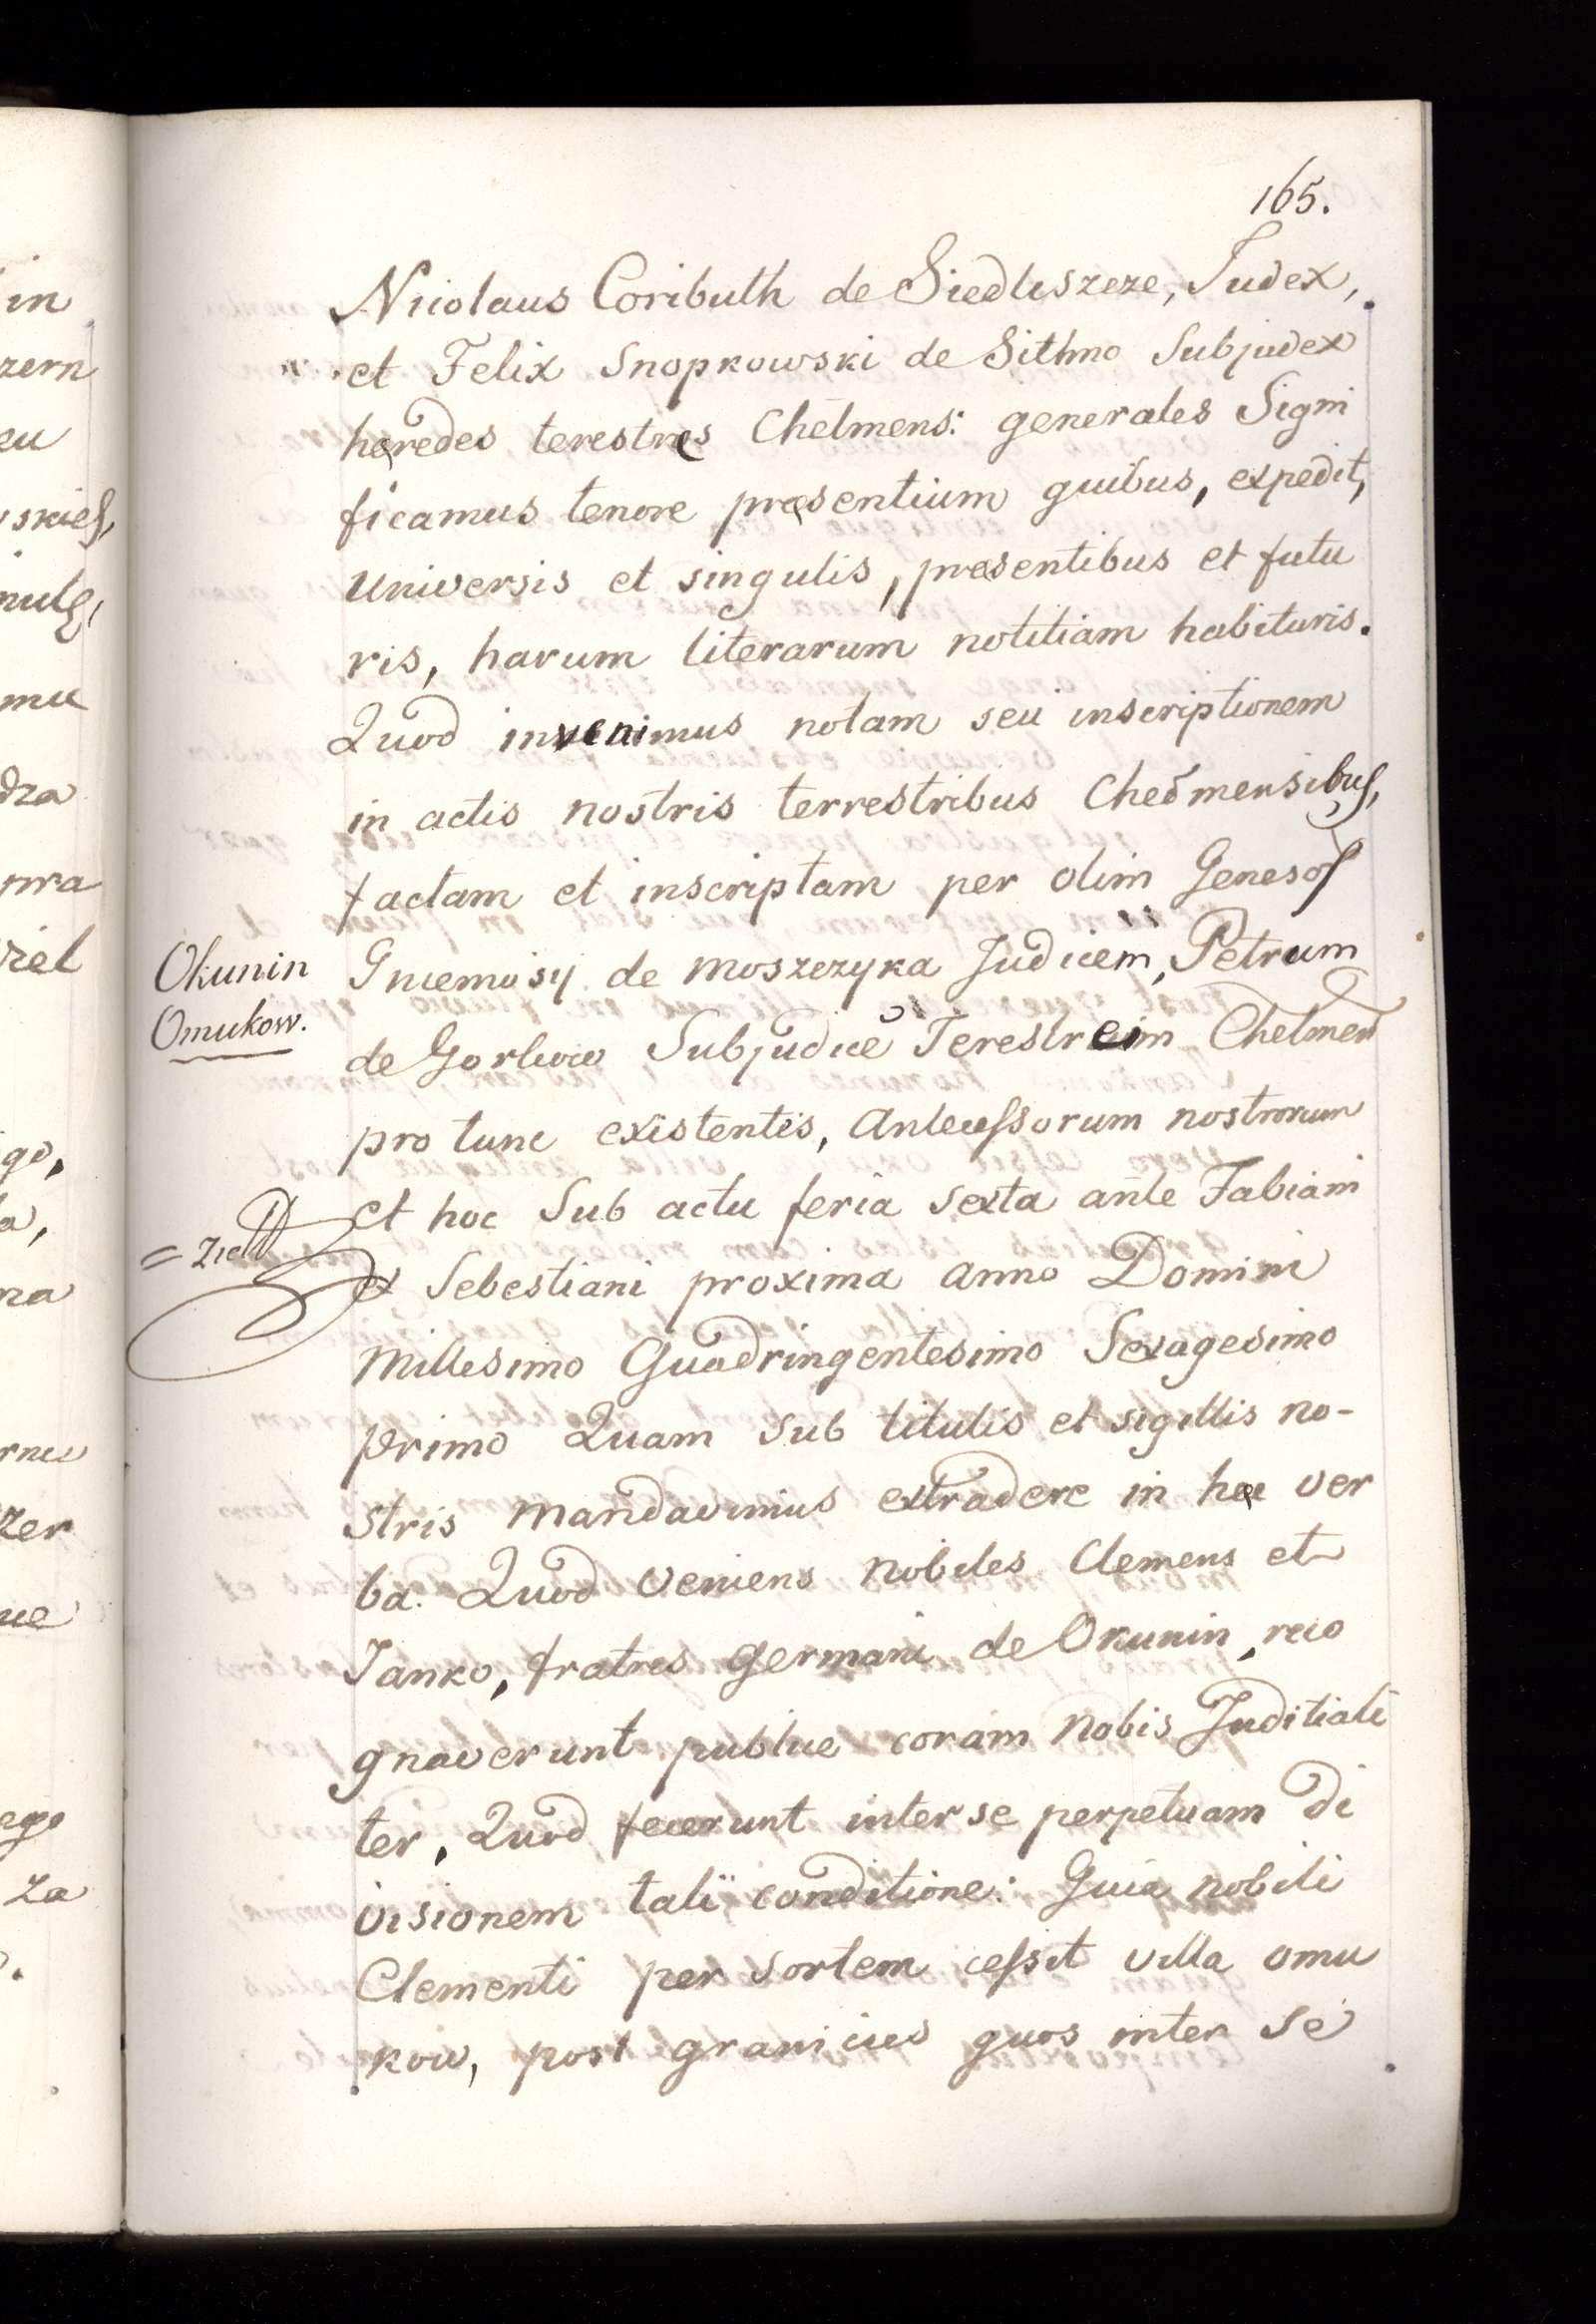 165.
Niiolaus Coributh de Siedliszeze, Judex,
et Felix Snopkowski de Sithno Subjudex
heredes terestres Chelmens: generales Signi
ficamus tenore presentium quibus, expedit,
universis et singulis, presentibus et futu
ris, harum literarum notitiam habituris.
Quod invenimus notam seu inscriptionem
in actis nostris terrestribus Chelmensibus,
factam et inscriptam per olim Genesos
Okunin
Omukow.
Gniemosij de Moszezyka Judicem, Petrum
de Gorliow Subjudice Terestreim Chelmen
pro tunc existentis, Antecessorum nostrorum
et hoc Sub actu feria sexta ante Fabiani
= Zie
et Sebestiani proxima anno Domini
Millesimo Quadringentesimo Sexagesimo
primo Quam sub titulis et sigillis no-
stris mandavimus extradere in hec ver
ba. Quod veniens nobiles Clemens et
Janko, fratres germani de Okunin, reco
gnaverunt publice coram nobis Juditiali
ter, Quod fecerunt inter se perpetuam di
visionem tali conditione: Quia nobili
Clementi per sortem cessit villa omu
kow, post granicies quos inter se